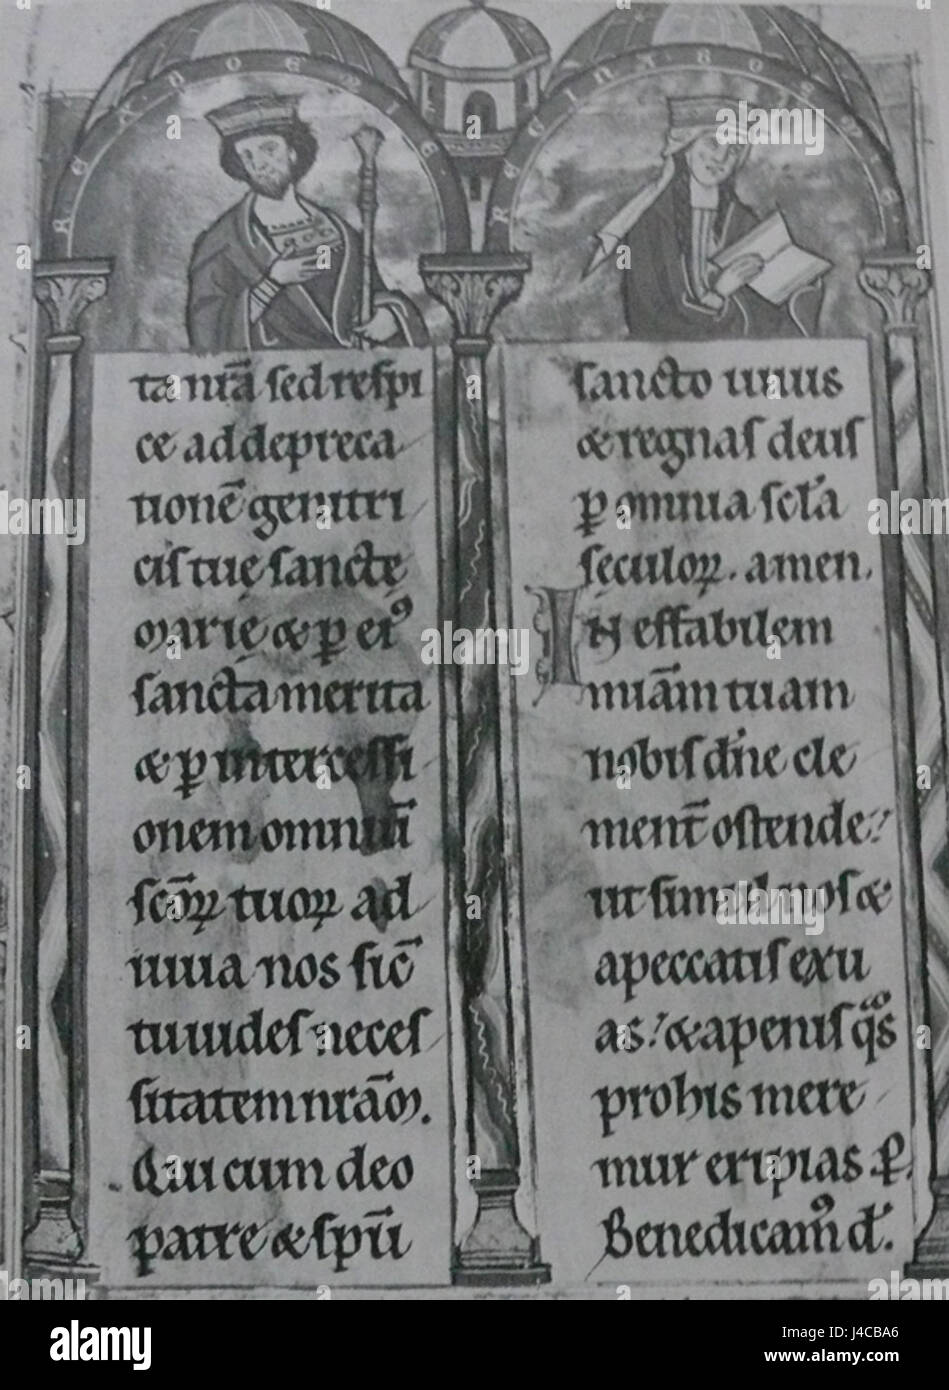 REX BOEMIE
REGINA BOEMIE
ta niā sed respi
ce ad depreca
tionē genitri
cis tuę sanctę
marię & ꝑ eiꝰ
sancta merita
& ꝑ intercessi
onem omniū
scōꝝ tuoꝝ ad
iuua nos sic̄
tu uides neces
sitatem nrām.
Qui cum deo
patre & spū
sancto uiuis
& regnas deus
ꝑ omnia scl̓a
sęculoꝝ. amen.
Ineffabilem
miām tuam
nobis dn̄e cle
ment̄ ostende:
ut simul nos &
a peccatis exu
as: & a penis qͦs
pro his mere
mur eripias ꝑ.
Benedicamꝰ d.
alamy stock photo
J4CBA6
www.alamy.com